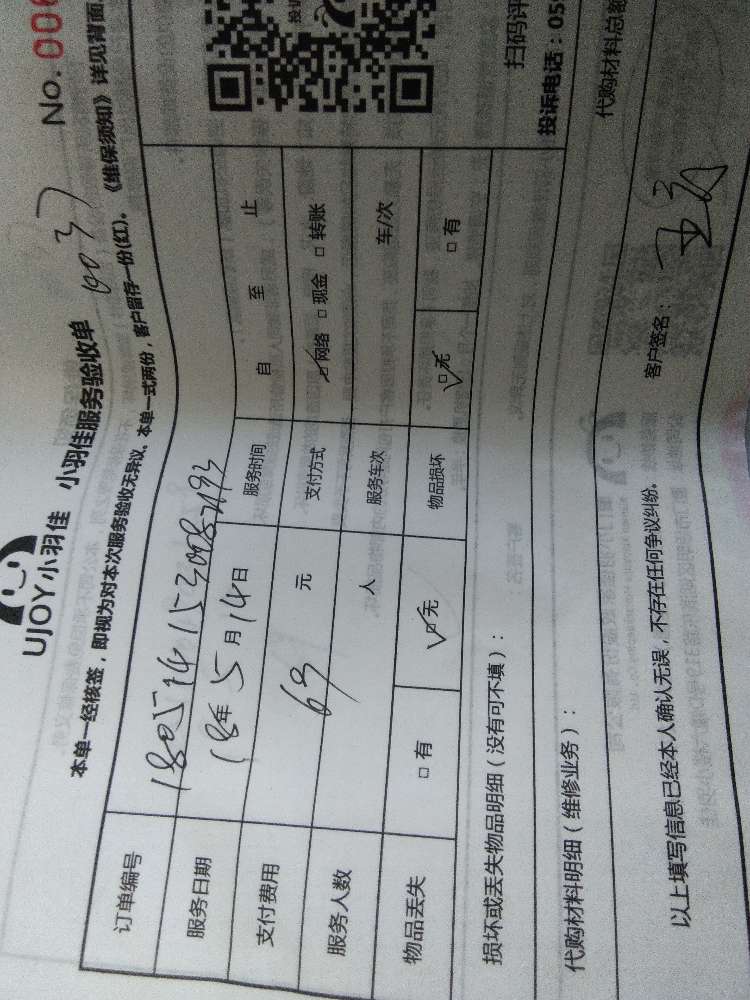 UJOY小羽佳 小羽佳服务验收单 0037 No.006
本单一经核签，即视为对本次服务验收无异议。本单一式两份，客户留存一份(红)。《维保须知》详见背面。
订单编号
服务日期 18年5月14日 服务时间 自 至 止
支付费用 63 元 支付方式 ☑网络 □现金 □转账
服务人数 人 服务车次 车/次
物品丢失 □有 ☑无 物品损坏 ☑无 □有
损坏或丢失物品明细（没有可不填）：
扫码评
投诉电话：059
代购材料明细（维修业务）： 代购材料总额
以上填写信息已经本人确认无误，不存在任何争议纠纷。 客户签名：